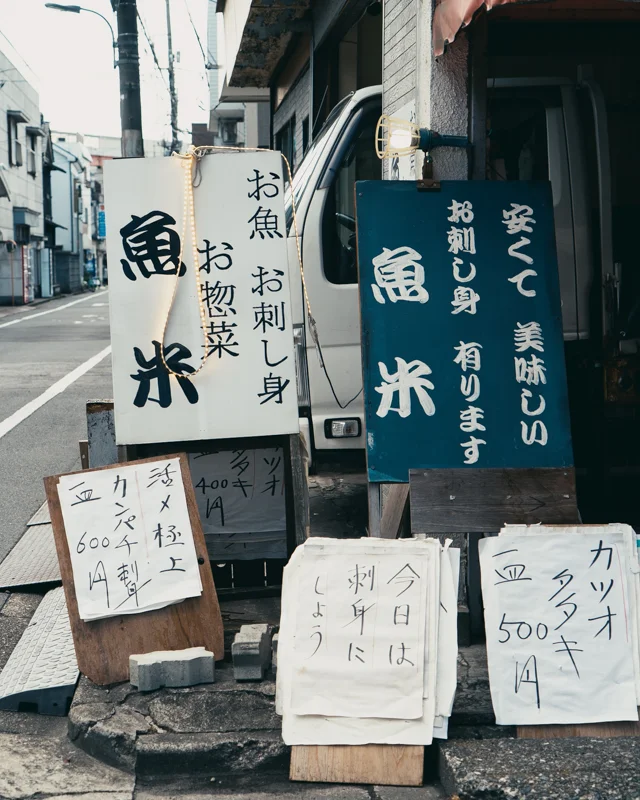 お魚 お刺し身
お惣菜
魚米
安くて 美味しい
お刺し身 有ります
魚米
活〆極上
カンパチ刺
一皿 600円
カツオ
タタキ
400円
今日は
刺身に
しよう
カツオ
タタキ
一皿 500円